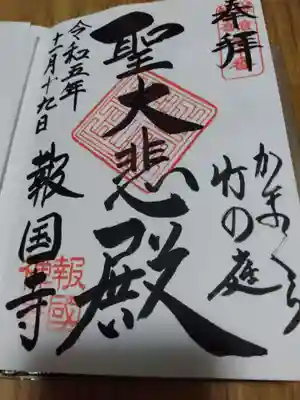 奉拝
かまくら
竹の庭
聖大悲殿
令和五年
十一月十九日
報国寺
報國